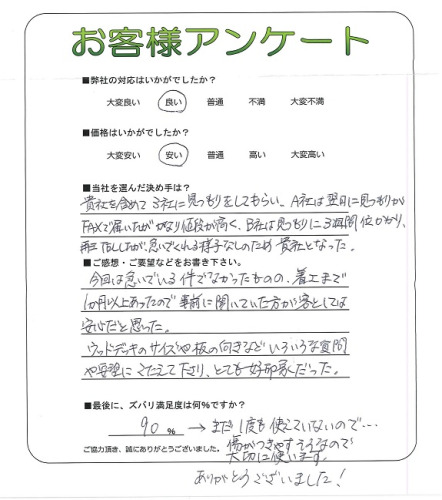 お客様アンケート
■弊社の対応はいかがでしたか?
大変良い 良い 普通 不満 大変不満
■価格はいかがでしたか?
大変安い 安い 普通 高い 大変高い
■当社を選んだ決め手は?
貴社を含めて3社に見つもりをしてもらい、A社は翌日に見つもりが
FAXで届いたがかなり値段が高く、B社は見つもりに3週間位かかり、
したが、急いでくれる様子なしのため 貴社となった。
■ご感想・ご要望などをお書き下さい。
今回は急いでいる件でなかったものの、着工まで
1か月以上あったので事前に聞いていた方が客としては
安心だと思った。
ウッドデッキのサイズや板の向きなどいろいろな質問
や要望にこたえて下さり、とても好印象だった。
■最後に、ズバリ満足度は何%ですか?
90 % → まだ1度も使えていないので…
傷がつきやすそうなので
ご協力頂き、誠にありがとうございました。 大切に使います。
ありがとうございました!